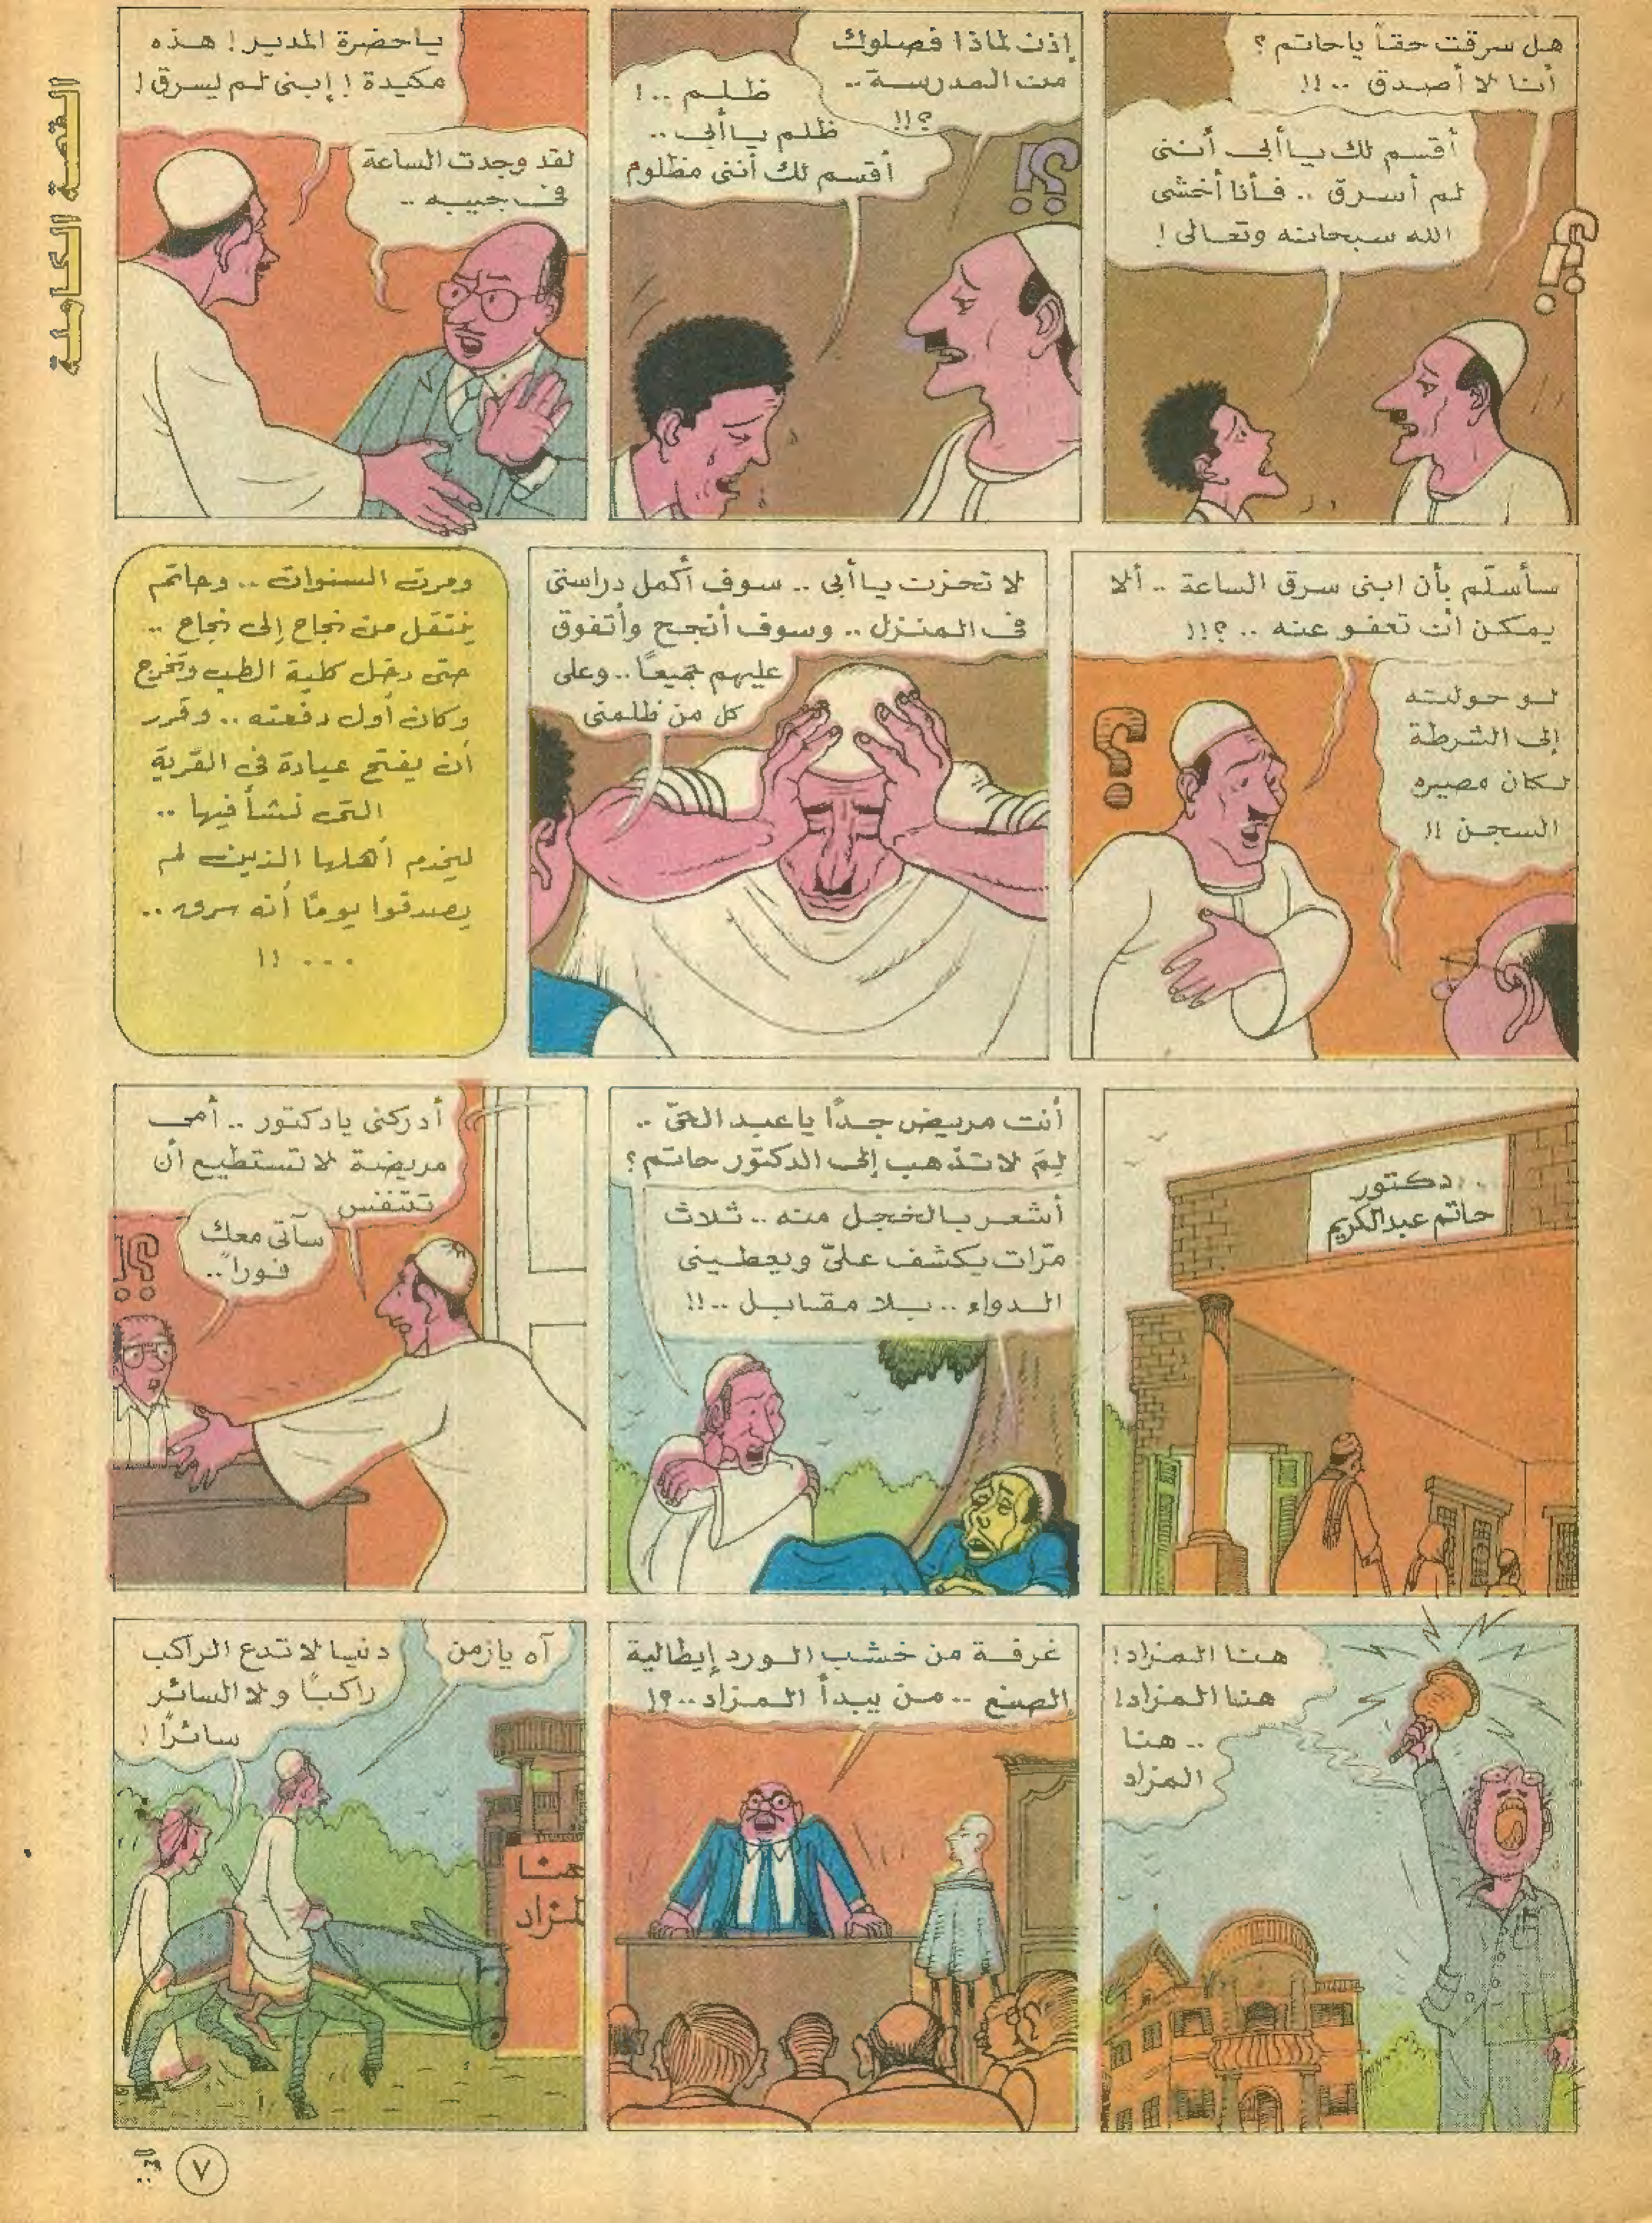 القصة الكاملة
هل سرقت حقاً يا حاتم ؟
أنا لا أصدق ..!!
أقسم لك يا أبى أننى
لم أسرق .. فأنا أخشى
الله سبحانه وتعالى !
إذن لماذا فصلوك
من المدرسة ..
؟!!
ظلم ..!
ظلم يا أبى ..
أقسم لك أننى مظلوم
يا حضرة المدير ! هذه
مكيدة ! إبنى لم يسرق !
لقد وجدت الساعة
فى جيبه ..
سأسلّم بأن ابنى سرق الساعة .. ألا
يمكن أن تعفو عنه ..؟!!
لو حولته
إلى الشرطة
لكان مصيره
السجن !!
لا تحزن يا أبى .. سوف أكمل دراستى
فى المنزل .. وسوف أنجح وأتفوق
عليهم جميعاً .. وعلى
كل من ظلمنى
ومرت السنوات .. وحاتم
ينتقل من نجاح إلى نجاح ..
حتى دخل كلية الطب وتخرج
وكان أول دفعته .. وقرر
أن يفتح عيادة فى القرية
التى نشأ فيها ..
ليخدم أهلها الذين لم
يصدقوا يوماً أنه سرق ..
... !!
دكتور
حاتم عبدالكريم
أنت مريض جداً يا عبد الحىّ ..
لِمَ لا تذهب إلى الدكتور حاتم ؟
أشعر بالخجل منه .. ثلاث
مرّات يكشف علىّ ويعطينى
الدواء .. بلا مقابل ..!!
أدركنى يا دكتور .. أمى
مريضة لا تستطيع أن
تتنفس
سآتى معك
فوراً ..
هنا المزاد !
هنا المزاد !
.. هنا
المزاد
غرفة من خشب الورد إيطالية
الصنع .. من يبدأ المزاد ..؟!
آه يا زمن
دنيا لا تدع الراكب
راكباً ولا السائر
سائراً !
هنا
لمزاد
٧